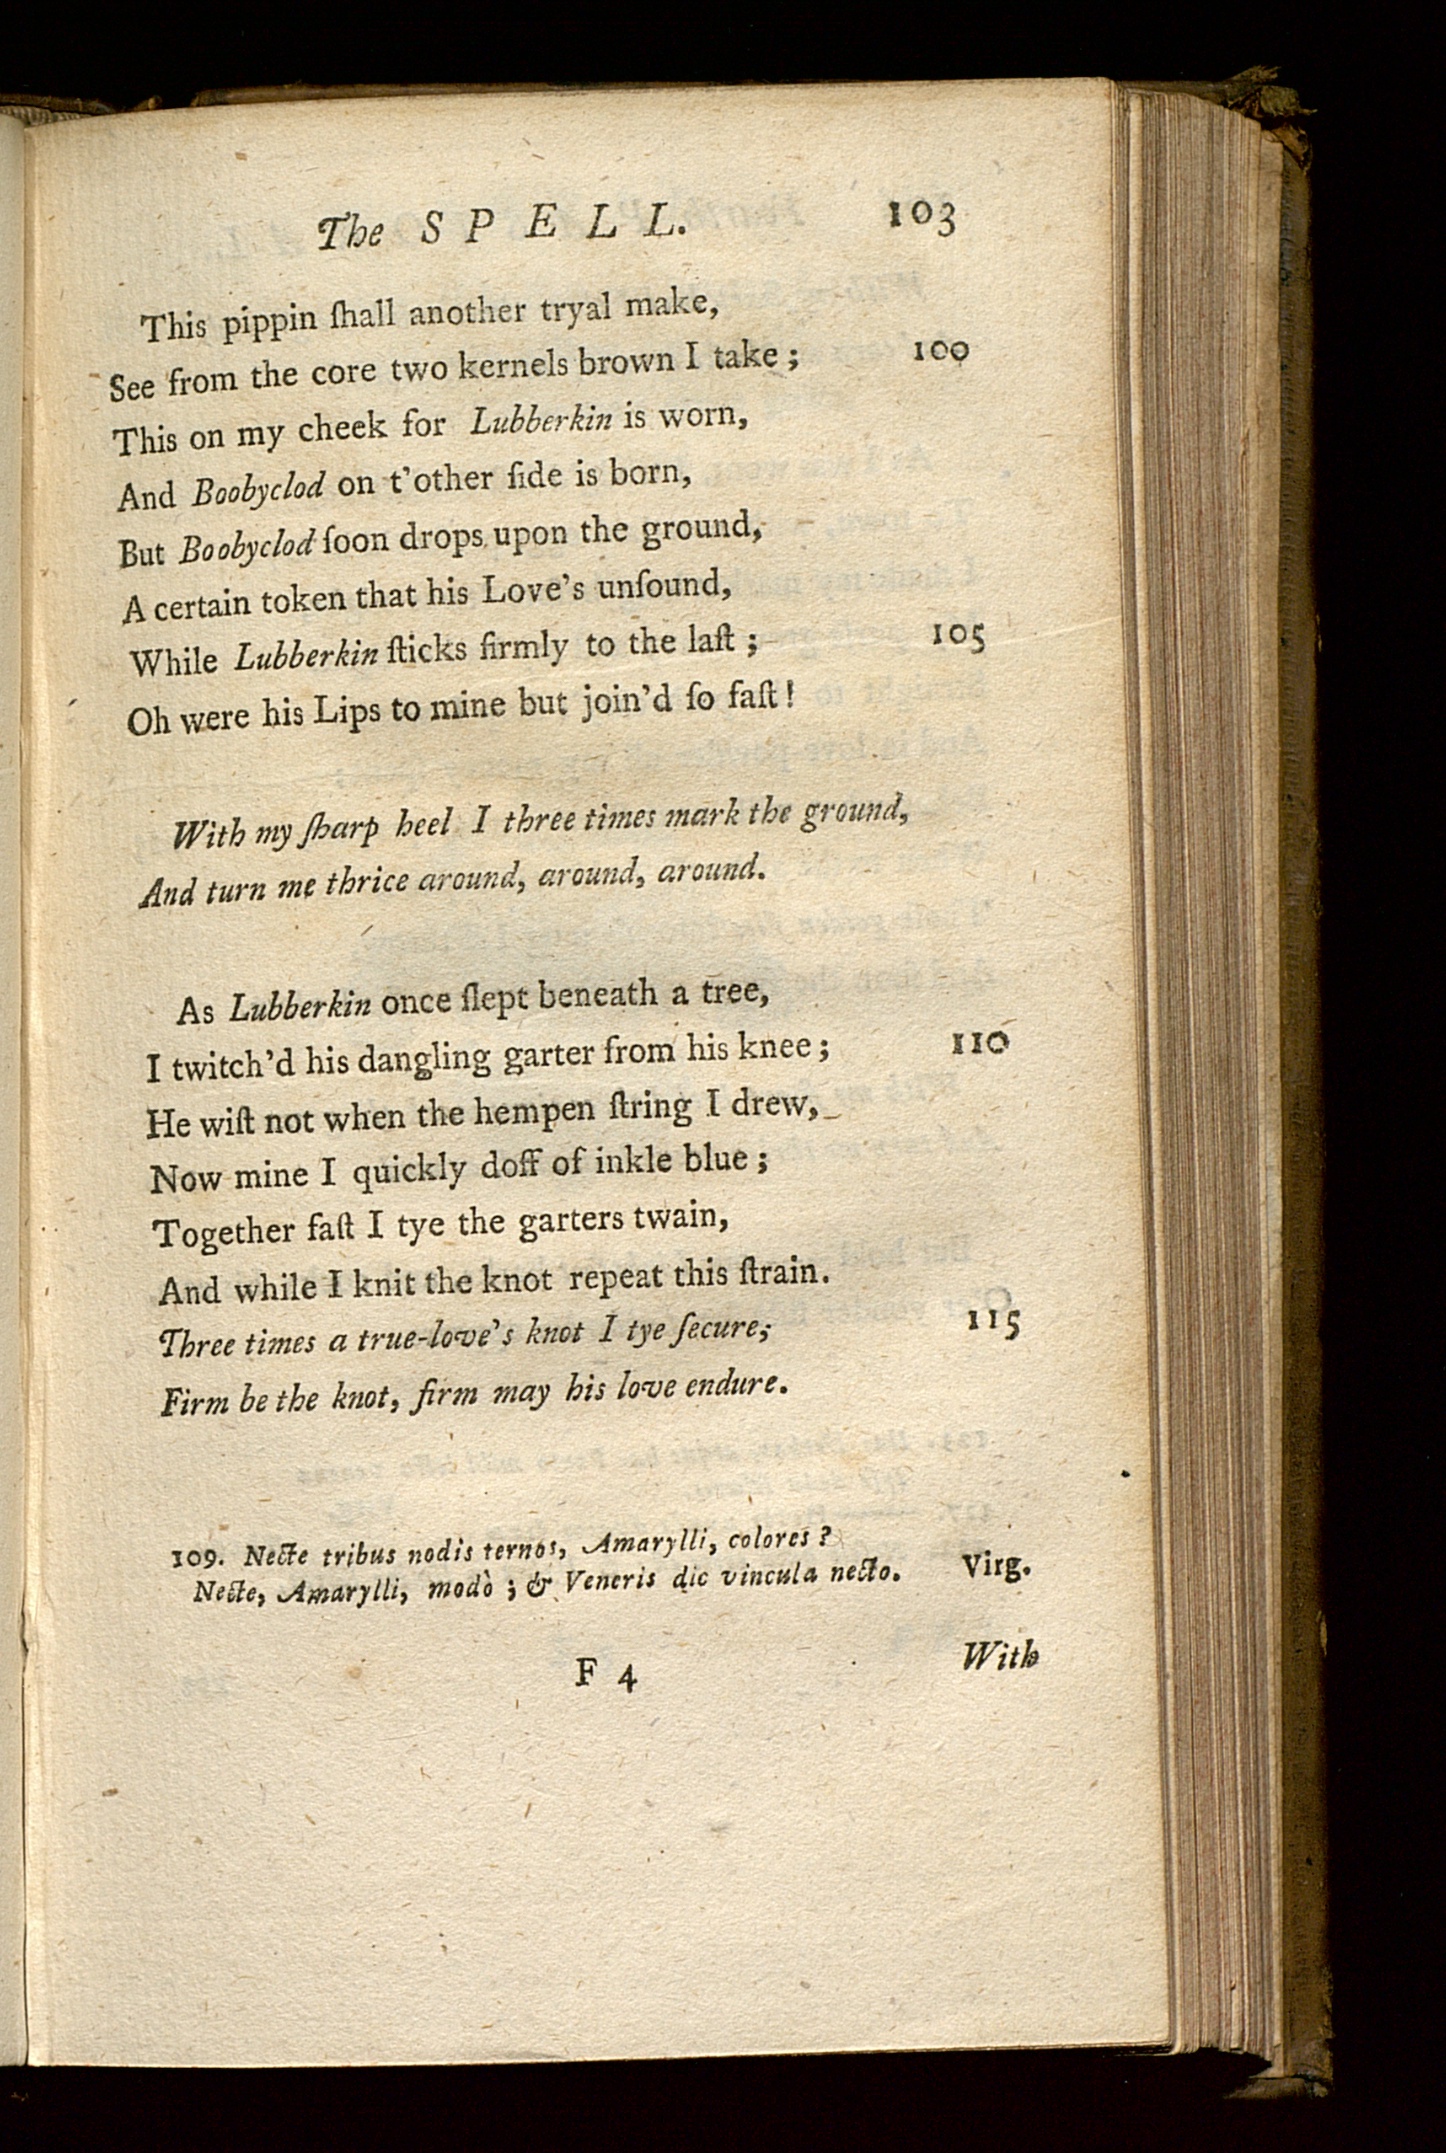 The SPELL. 103
This pippin ſhall another tryal make,
See from the core two kernels brown I take; 100
This on my cheek for Lubberkin is worn,
And Boobyclod on t'other ſide is born,
But Boobyclod ſoon drops upon the ground,
A certain token that his Love's unſound,
While Lubberkin ſticks firmly to the laſt; 105
Oh were his Lips to mine but join'd ſo faſt!
With my ſharp heel I three times mark the ground,
And turn me thrice around, around, around.
As Lubberkin once ſlept beneath a tree,
I twitch'd his dangling garter from his knee; 110
He wiſt not when the hempen ſtring I drew,
Now mine I quickly doff of inkle blue;
Together faſt I tye the garters twain,
And while I knit the knot repeat this ſtrain.
Three times a true-love's knot I tye ſecure; 115
Firm be the knot, firm may his love endure.
109. Necte tribus nodis ternos, Amarylli, colores?
Necte, Amarylli, modò; & Veneris dic vincula necto. Virg.
F 4 With